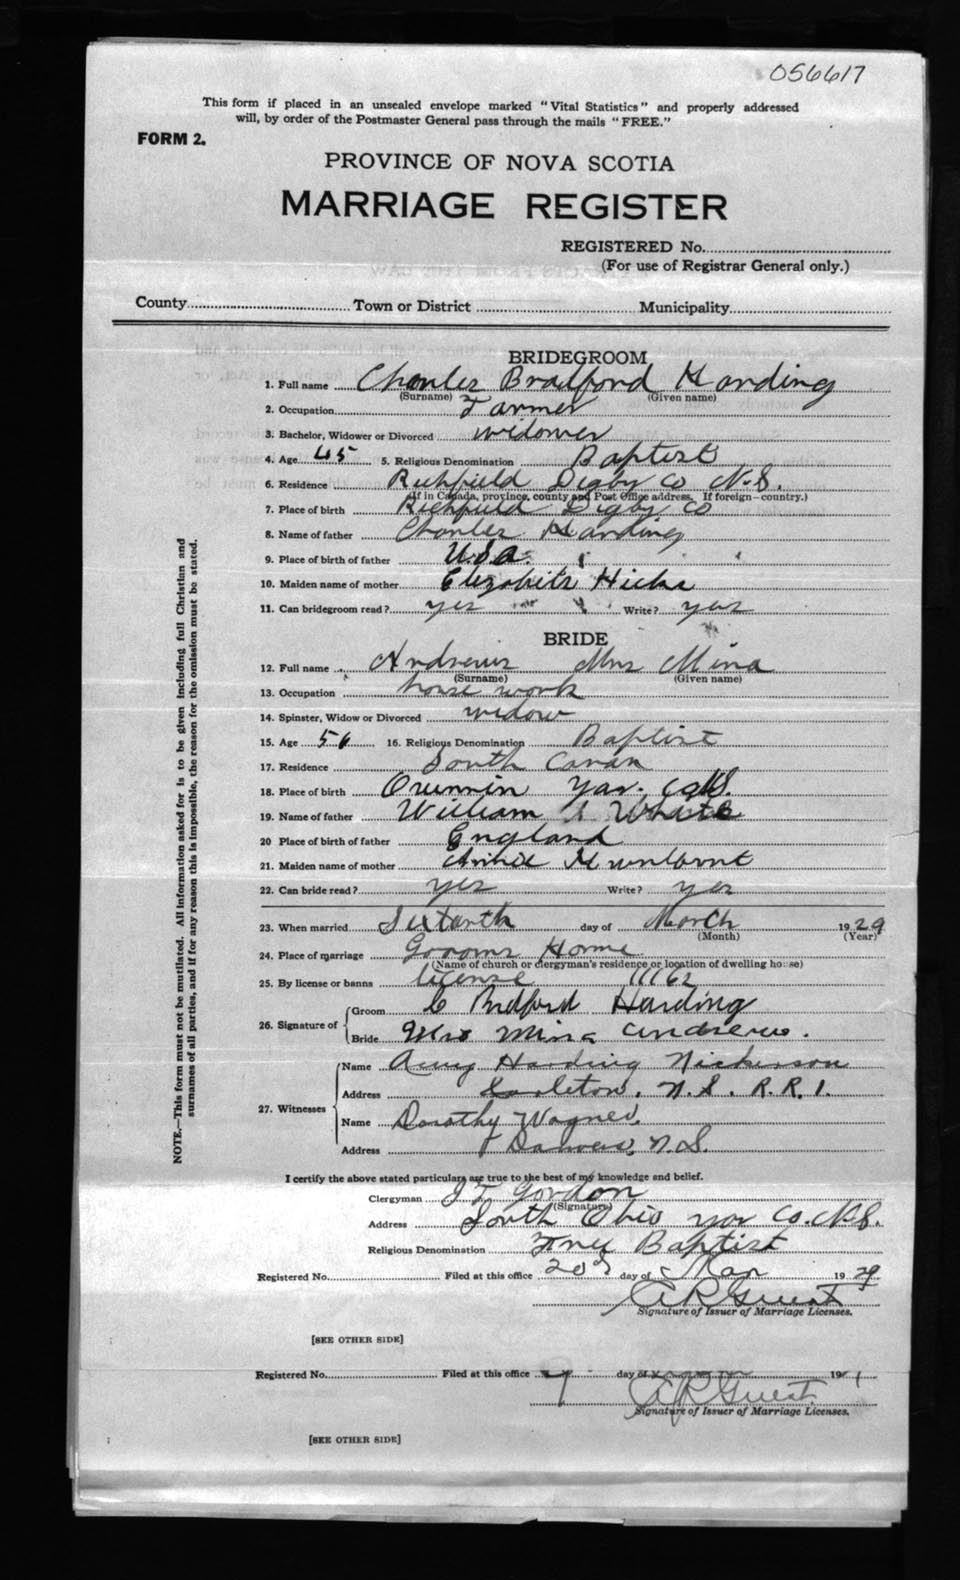 056617
This form if placed in an unsealed envelope marked "Vital Statistics" and properly addressed
will, by order of the Postmaster General pass through the mails "FREE."
FORM 2.
PROVINCE OF NOVA SCOTIA
MARRIAGE REGISTER
REGISTERED No.
(For use of Registrar General only.)
County Town or District Municipality
BRIDEGROOM
1. Full name Charles Bradford Harding
(Surname) (Given name)
2. Occupation Farmer
3. Bachelor, Widower or Divorced widower
4. Age 45 5. Religious Denomination Baptist
6. Residence Richfield Digby Co N.S.
(If in Canada, province, county and Post Office address. If foreign—country.)
7. Place of birth Richfield Digby Co
8. Name of father Charles Harding
9. Place of birth of father U.S.a.
10. Maiden name of mother Hicks
11. Can bridegroom read? yes Write? yes
BRIDE
12. Full name Andrews Mrs Mina
(Surname) (Given name)
13. Occupation house work
14. Spinster, Widow or Divorced widow
15. Age 56 16. Religious Denomination Baptist
17. Residence South
18. Place of birth Yar. Co N.S.
19. Name of father William White
20 Place of birth of father England
21. Maiden name of mother
22. Can bride read? yes Write? yes
23. When married day of March 1929
(Month) (Year)
24. Place of marriage Grooms Home
(Name of church or clergyman's residence or location of dwelling house)
25. By license or banns license 11162
26. Signature of Groom C Bedford Harding
Bride Mrs Mina Andrews.
27. Witnesses
Name Harding Nickerson
Address Carleton, N.S. R.R.1.
Name Dorothy Wagner,
Address N.S.
I certify the above stated particulars are true to the best of my knowledge and belief.
Clergyman Gordon
(Signature)
Address South Ohio Yar Co. N.S.
Religious Denomination Free Baptist
Registered No. Filed at this office 20 day of Mar 1929
A R Guest
Signature of Issuer of Marriage Licenses.
[SEE OTHER SIDE]
Registered No. Filed at this office day of 19
A R Guest
Signature of Issuer of Marriage Licenses.
[SEE OTHER SIDE]
NOTE.—This form must not be mutilated. All information asked for is to be given including full Christian and
surnames of all parties, and if for any reason this is impossible, the reason for the omission must be stated.